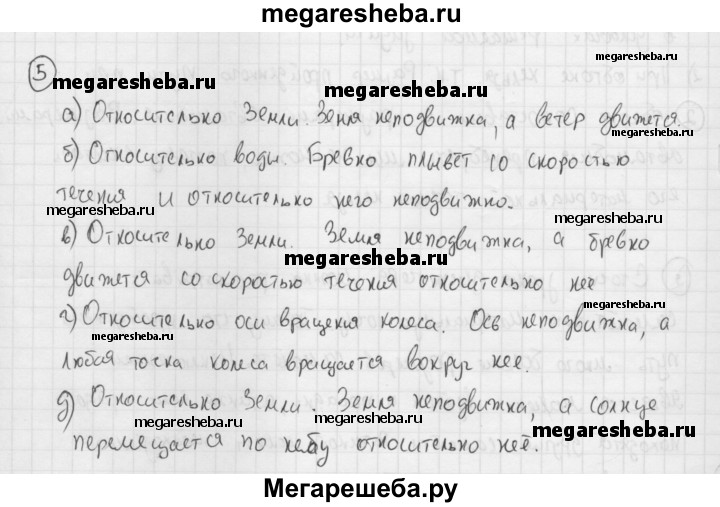 megaresheba.ru
megaresheba.ru
5
megaresheba.ru megaresheba.ru
а) Относительно Земли. Земля неподвижка, а ветер движется.
megaresheba.ru
б) Относительно воды. Бревно плывёт со скоростью
течения и относительно него неподвижно.
megaresheba.ru megaresheba.ru
в) Относительно Земли. Земля неподвижка, а бревно
megaresheba.ru
движется со скоростью течения относительно неё
megaresheba.ru
г) Относительно оси вращения колеса. Ось неподвижка, а
megaresheba.ru
любая точка колеса вращается вокруг неё.
megaresheba.ru
д) Относительно Земли. Земля неподвижка, а солнце
megaresheba.ru megaresheba.ru
перемещается по небу относительно неё.
megaresheba.ru
Мегарешеба.ру